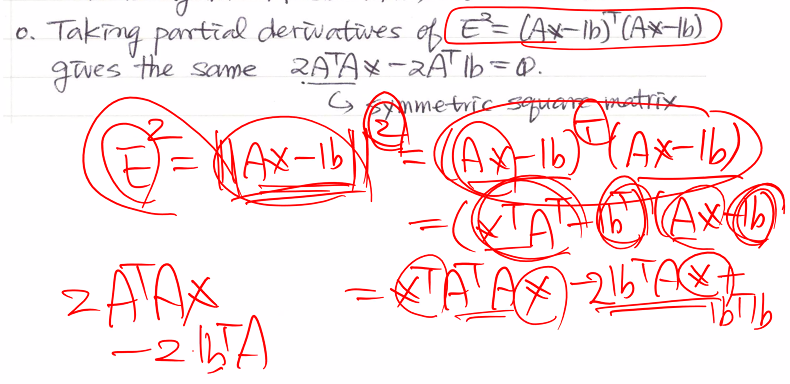 o. Taking partial derivatives of E² = (Ax-b)ᵀ(Ax-b)
gives the same 2AᵀAx - 2Aᵀb = 0.
↳ symmetric square matrix
E² = ||Ax-b||² = (Ax-b)ᵀ(Ax-b)
= (xᵀAᵀ-bᵀ)(Ax-b)
2AᵀAx = xᵀAᵀAx - 2bᵀAx + bᵀb
-2·bᵀA